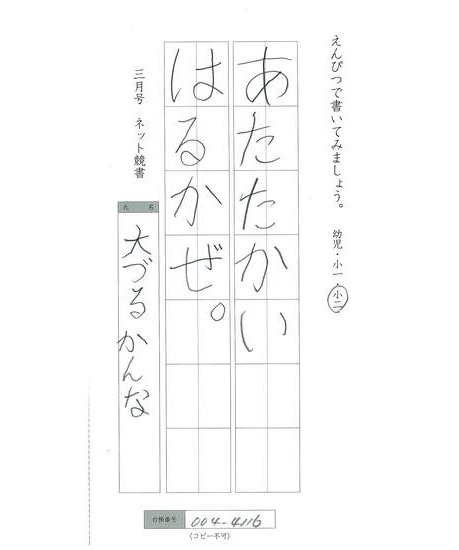 えんぴつで書いてみましょう。
幼児・小一・小二
あたたかい
はるかぜ。
三月号 ネット競書
氏名
大づるかんな
台帳番号 004-4116
(コピー不可)